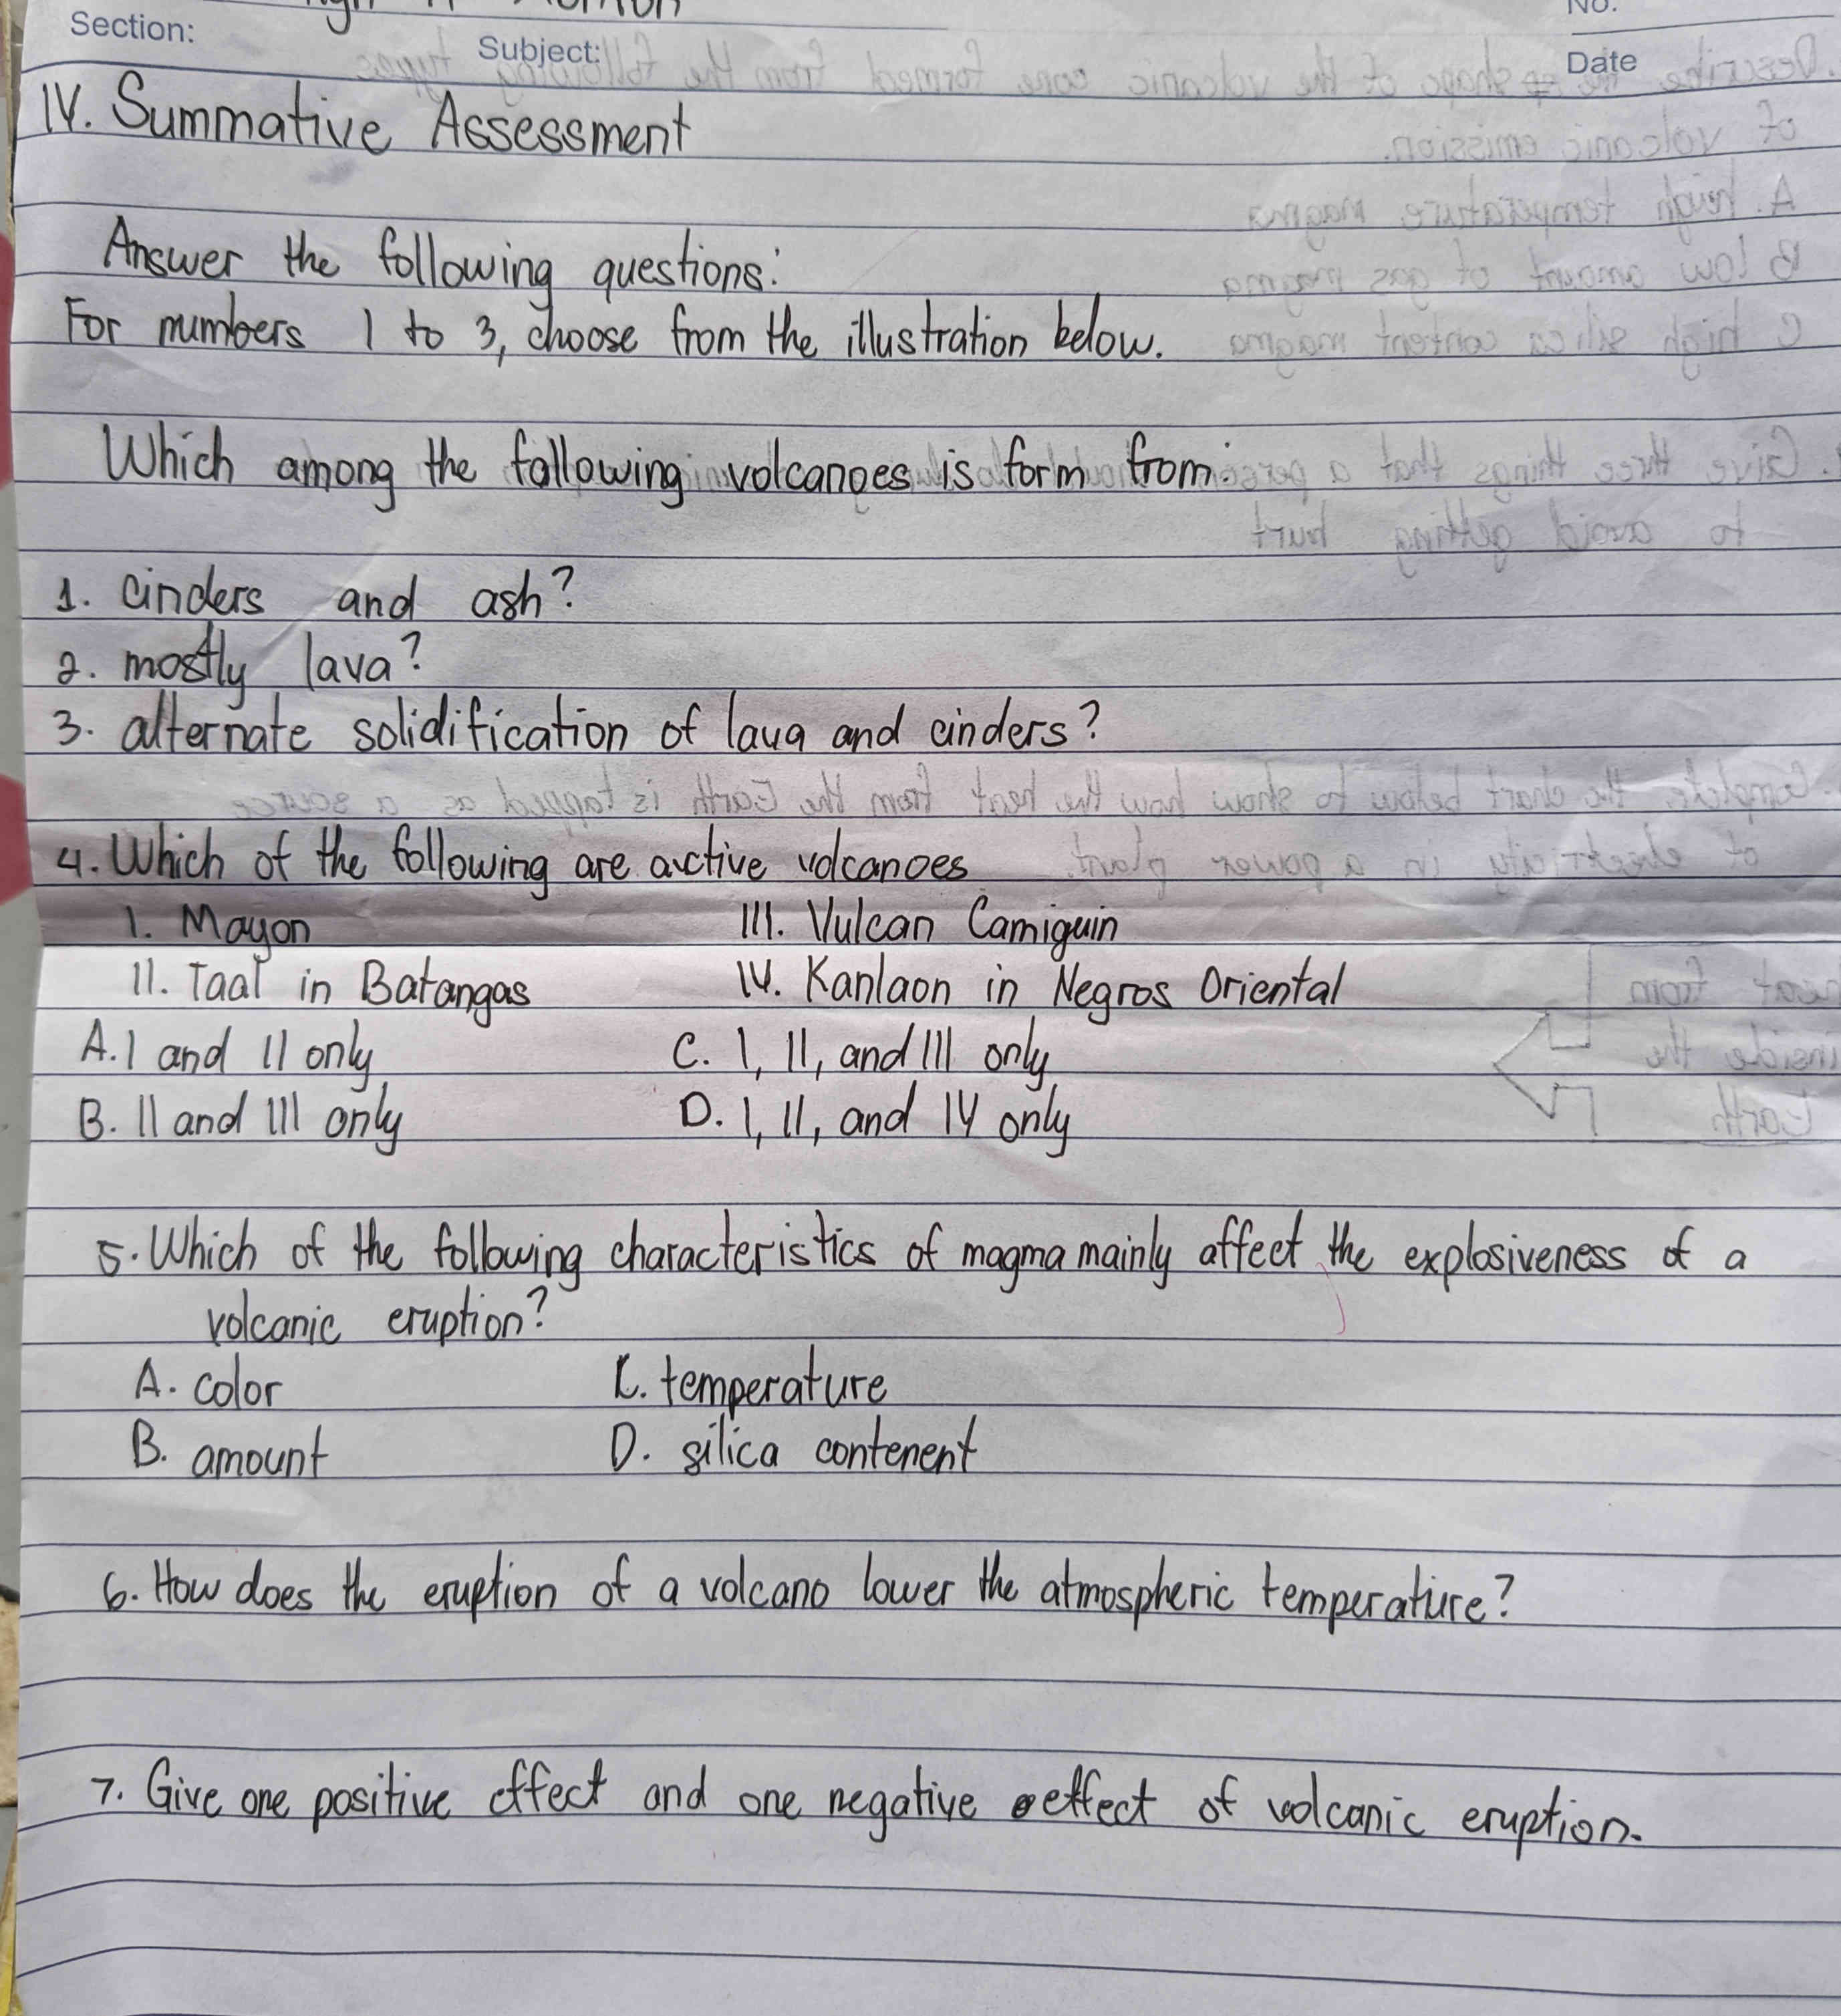 No.
Section:
Subject:
Date
IV. Summative Assessment
Answer the following questions:
For numbers 1 to 3, choose from the illustration below.
Which among the following volcanoes is form from:
1. cinders and ash?
2. mostly lava?
3. alternate solidification of lava and cinders?
4. Which of the following are active volcanoes
I. Mayon III. Vulcan Camiguin
II. Taal in Batangas IV. Kanlaon in Negros Oriental
A. I and II only C. I, II, and III only
B. II and III only D. I, II, and IV only
5. Which of the following characteristics of magma mainly affect the explosiveness of a
volcanic eruption?
A. color C. temperature
B. amount D. silica contenent
6. How does the eruption of a volcano lower the atmospheric temperature?
7. Give one positive effect and one negative effect of volcanic eruption.